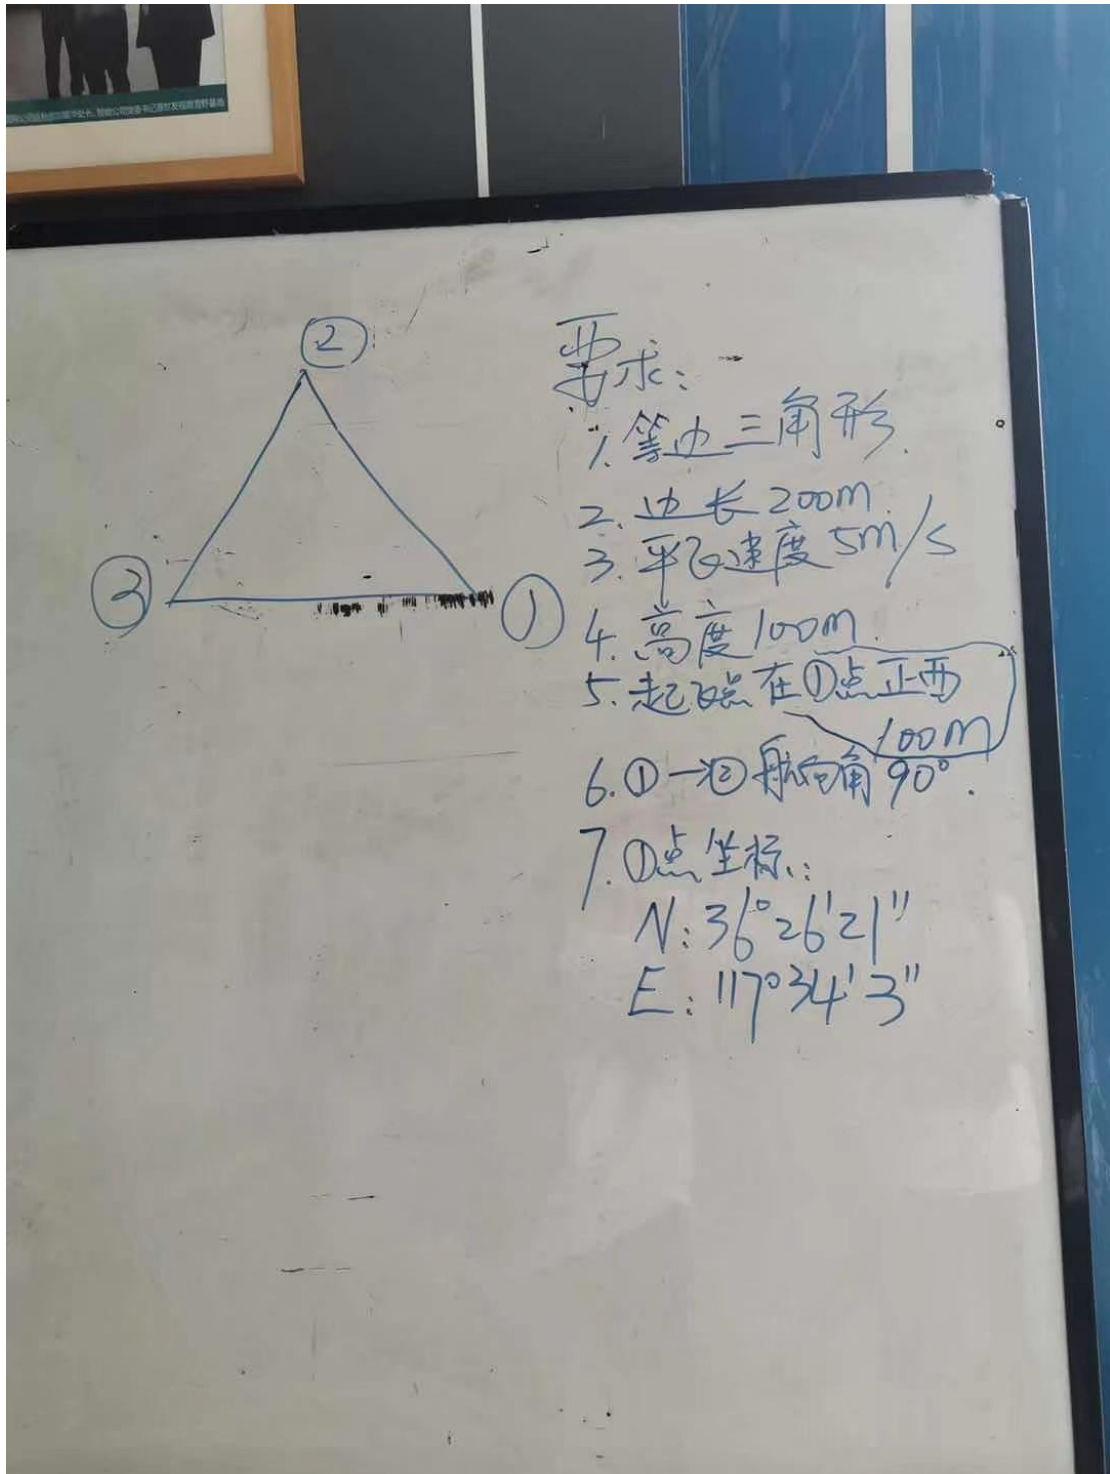 ②
③
①
要求:
1. 等边三角形.
2. 边长 200m.
3. 平飞速度 5m/s
4. 高度 100m.
5. 起飞点在①点正西
100m
6. ①→② 航向角 90°.
7. ①点坐标:
N: 36°26'21"
E: 117°34'3"